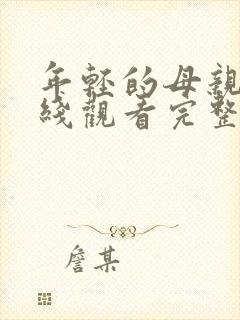 年轻的母親
綫觀看完整
詹某